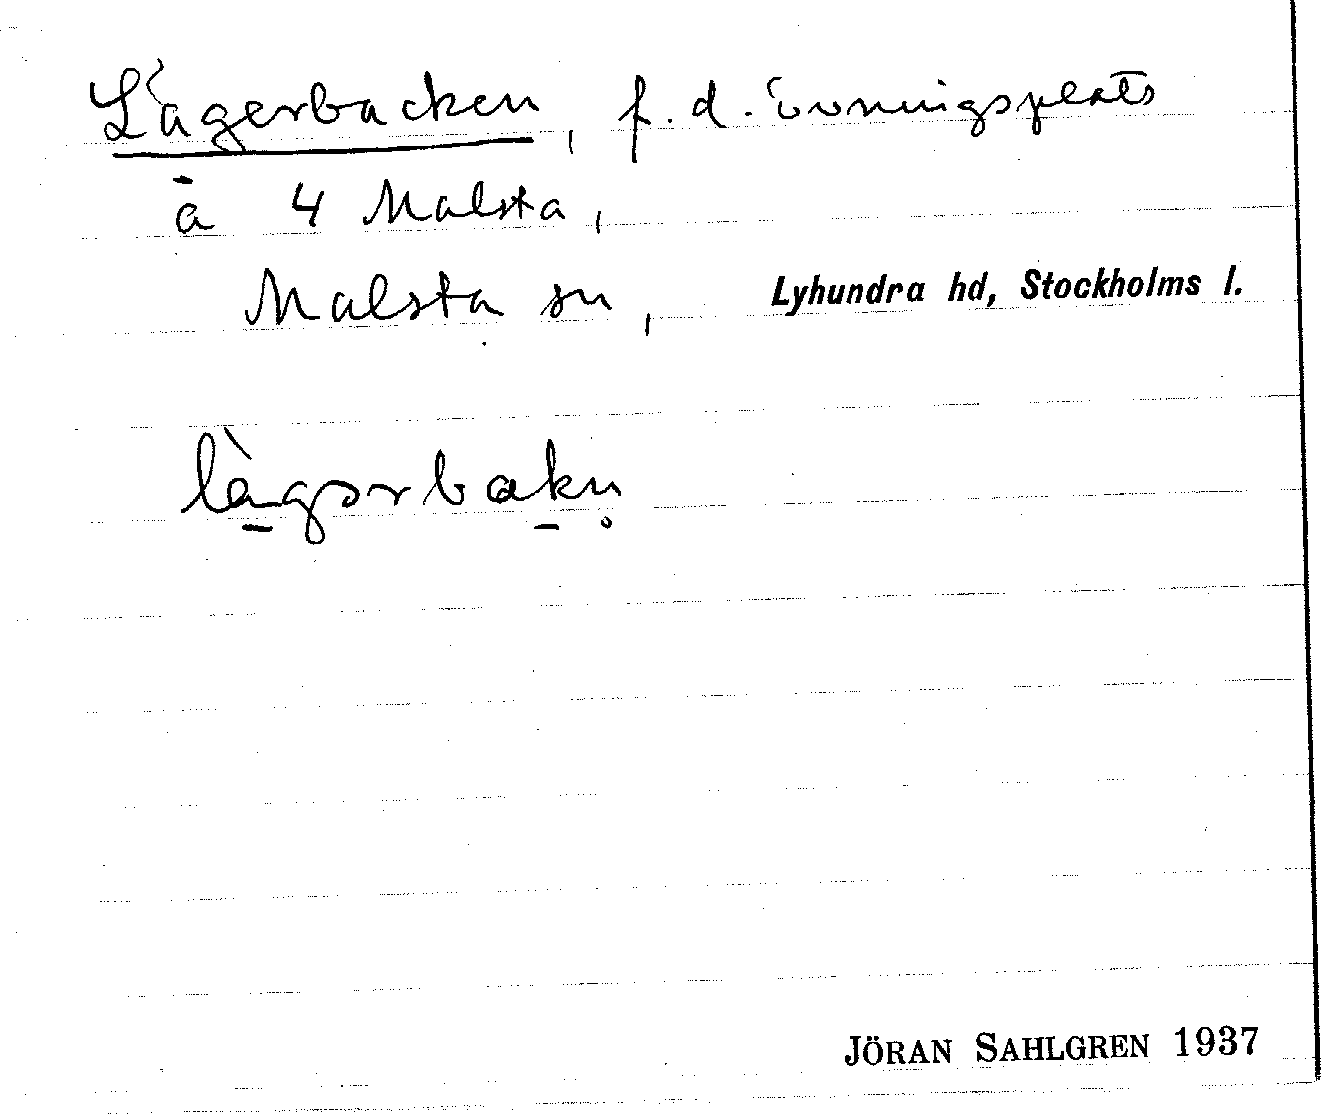 Lägerbacken, f. d. övningsplats
å 4 Malsta,
Malsta sn, Lyhundra hd, Stockholms l.
lὰgərbakn̥
JÖRAN SAHLGREN 1937